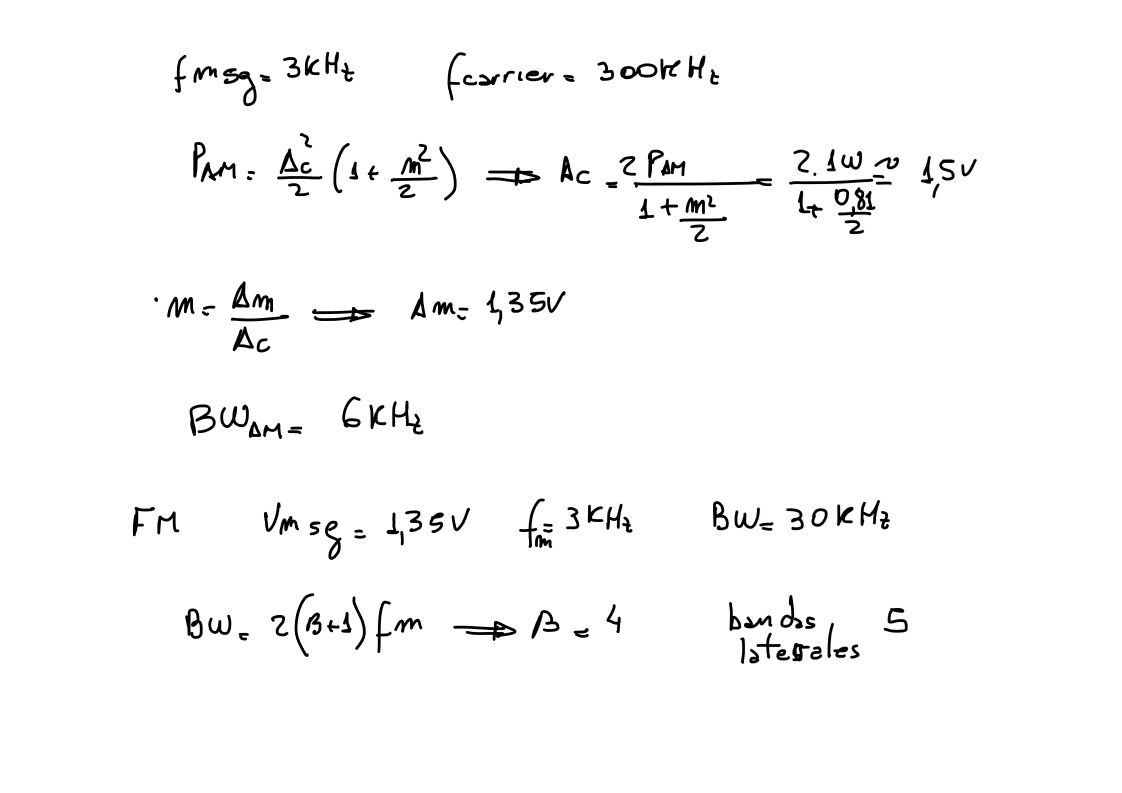 fmsg = 3KHz fcarrier = 300KHz
PAM = Ac²/2 (1 + m²/2) ⟹ Ac = 2 PAM / (1 + m²/2) = 2.1W / (1 + 0,81/2) ≈ 1,5V
· m = Am/Ac ⟹ Am = 1,35V
BWAM = 6KHz
FM Vmsg = 1,35V fm = 3KHz BW = 30KHz
BW = 2(β+1)fm ⟹ β = 4 bandas laterales 5